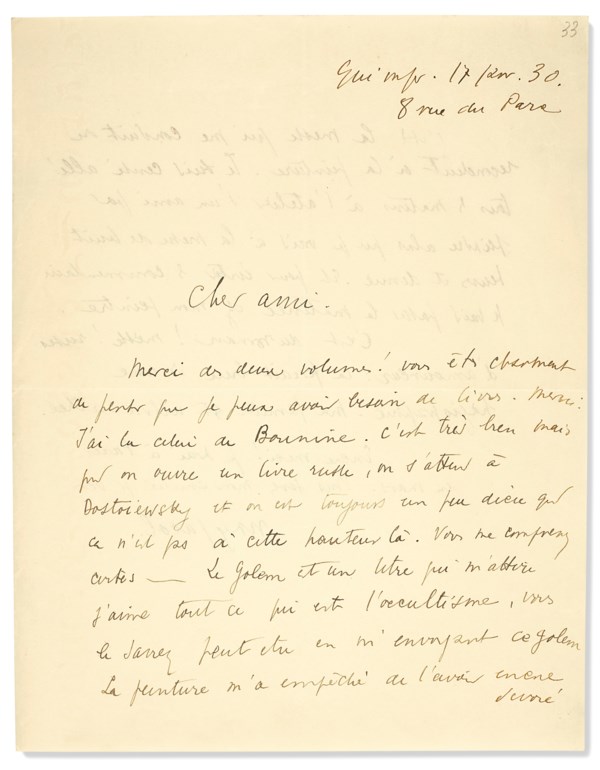 33
Quimper. 17 janv. 30.
8 rue du Parc
Cher ami.
Merci des deux volumes! vous êtes charmant
de penser que je peux avoir besoin de livres. Merci.
J'ai lu celui de Bounine. C'est très bien mais
qd on ouvre un livre russe, on s'attend à
Dostoïewsky et on est toujours un peu déçu qd
ce n'est pas à cette hauteur là. Vous me comprenez
certes — Le Golem est un titre qui m'attire
j'aime tout ce qui est l'occultisme, vous
le savez peut etre en m'envoyant ce golem
La peinture m'a empêché de l'avoir encore
dévoré